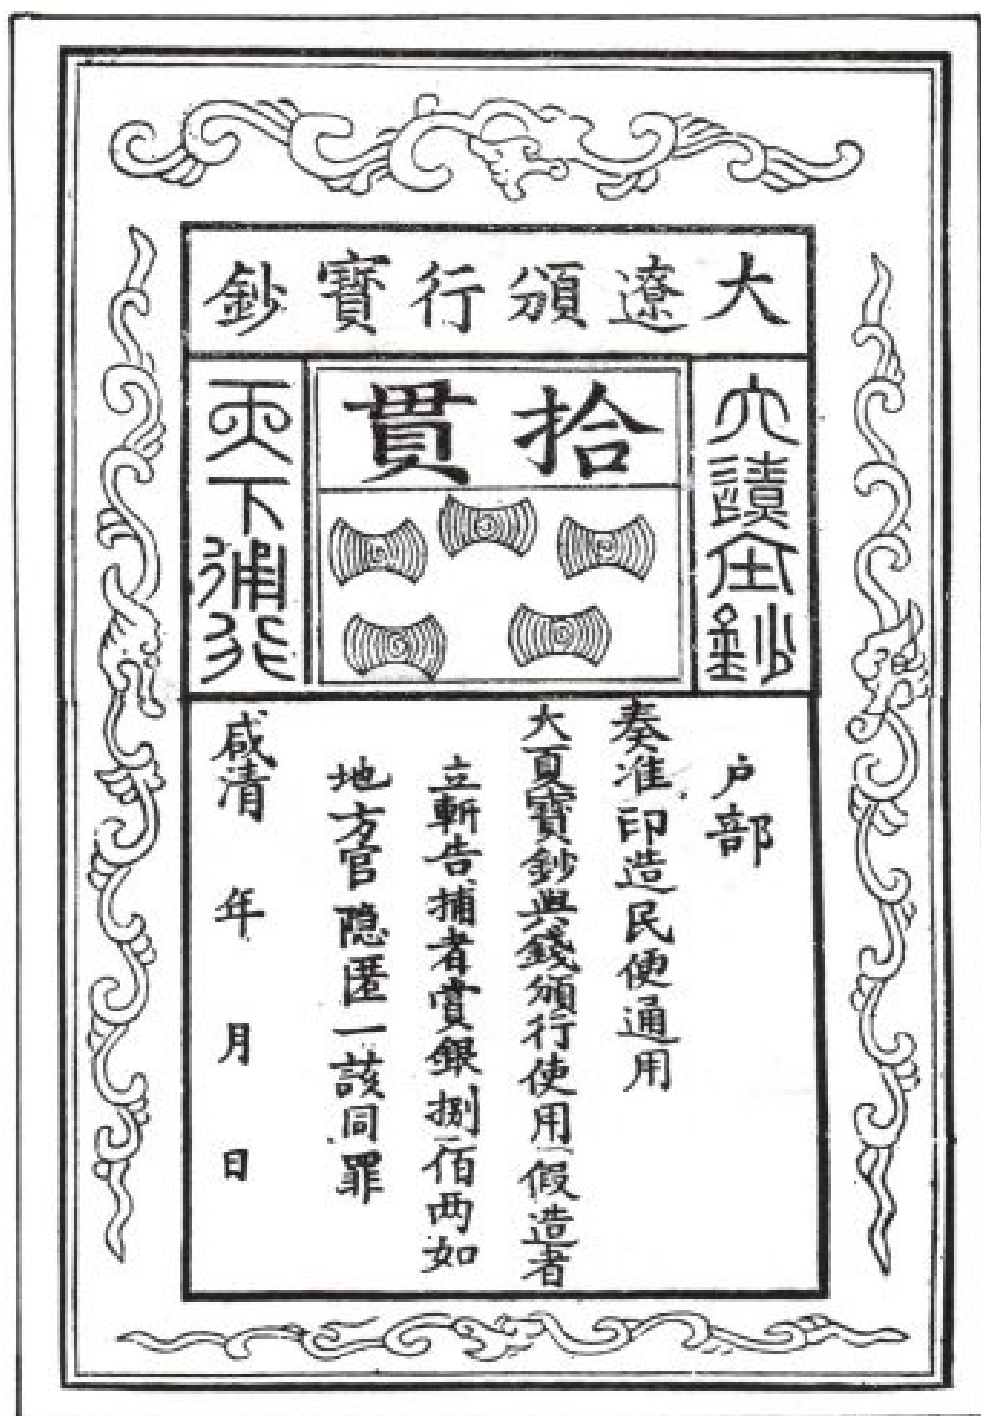 大遼頒行寶鈔
拾貫
鈔
天下通行
户部
奏准印造民便通用
大頁寶鈔與錢頒行使用假造者
立斬告捕者賞銀捌佰两如
地方官隐匿一該同罪
咸清 年 月 日